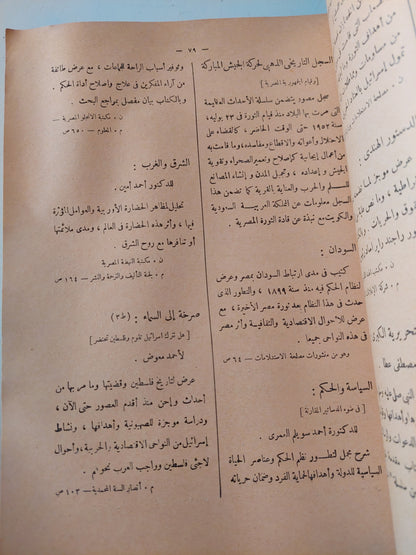 — ٧٩ —
السجل التاريخي الذهبي لحركة الجيش المباركة
[ وقيام الجمهورية المصرية ]
سجل مصور يتضمن سلسلة الأحداث العظيمة
التي مرت بها البلاد منذ قيام ثورة ٢٣ يوليه
١٩٥٢ حتى الوقت الحاضر، كالقضاء على
الاحتلال وأعوانه والاقطاع ومفاسده، وما قامت به
من أعمال إيجابية كإصلاح وتعمير الصحراء وتقوية
الجيش وإعداده ، وتجميل المدن وإنشاء المصانع
للسلم والحرب والعناية بالقرية كما تضمن هذا
السجل معلومات عن المملكة العربية السعودية
والكويت مع نبذة عن قادة الثورة المصرية .
السودان :
كتيب فى مدى ارتباط السودان بمصر وعرض
لنظام الحكم فيه منذ سنة ١٨٩٩ ، والتطور الذى
حدث فى هذا النظام بعد ثورة مصر الأخيرة ، مع
عرض للأحوال الاقتصادية والثقافية وأثر مصر
فى هذه النواحى جميعا .
وهو من منشورات مصلحة الاستعلامات — ٦٤ ص
السياسة والحكم :
[ فى ضوء الدساتير المقارنة ]
للدكتور أحمد سويلم العمرى .
شرح مجمل لتطور نظم الحكم وعناصر الحياة
السياسية للدولة وأهدافها لحماية الفرد وضمان حرياته
وتوفير أسباب الراحة للجماعات ، مع عرض طائفة
من آراء المفكرين فى علاج وإصلاح أداة الحكم .
وبالكتاب بيان مفصل بمراجع البحث .
ن . مكتبة الأنجلو المصرية —
م . العلوم — ٦٥٠ ص
الشرق والغرب :
للدكتور أحمد أمين .
تحليل لمظاهر الحضارة الأوربية والعوامل المؤثرة
فيها ، وأثر هذه الحضارة فى العالم ، ومدى ملائمتها
أو تنافرها مع روح الشرق .
ن . مكتبة النهضة المصرية
م . لجنة التأليف والترجمة والنشر — ١٦٤ ص
صرخة إلى السماء : (ط ٣)
[ هل تترك اسرائيل تقوم وفلسطين تحتضر ]
لأحمد معوض .
عرض لتاريخ فلسطين وقضيتها وما مر بها من
أحداث ومحن منذ أقدم العصور حتى الآن ،
ودراسة موجزة للصهيونية وأهدافها ، ونشاط
إسرائيل من النواحى الاقتصادية والحربية ، وأحوال
لاجئى فلسطين وواجب العرب نحوهم .
م . أنصار السنة المحمدية — ١٠٣ ص